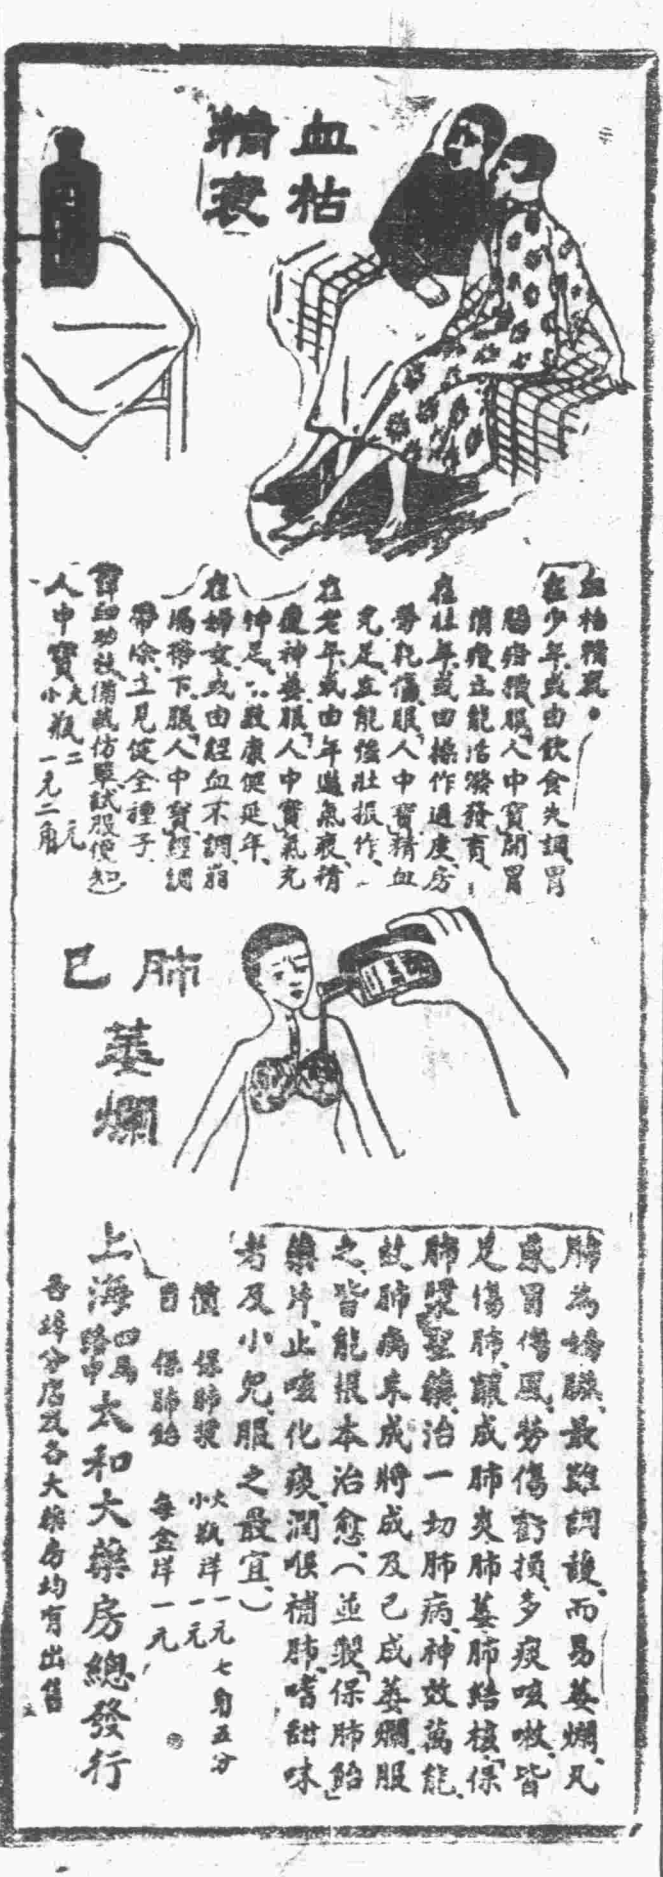 血枯
精衰
血枯精衰。
在少年或由飲食失調、胃
弱疳積服「人中寶」開胃
消疳立能活潑發育、
在壯年或因操作過度房
勞乾傷服「人中寶」精血
充足立能強壯振作、
在老年或由年邁氣衰精
復神萎服「人中寶」氣充
神足、致康健延年、
在婦女或由經血不調崩
漏帶下服「人中寶」經調
帶除、立見從全種子、
備載仿單試服便知)
人中寶大瓶二元
小瓶一元二角
肺已
萎爛
肺為嬌臟、最難調護、而易萎爛、凡
感冒傷風、勞傷虧損、多痰咳嗽、皆
足傷肺、釀成肺炎肺萎肺結核、「保
肺漿」聖藥、治一切肺病、神效萬能、
故肺病未成將成及已成萎爛、服
之、皆能根本治愈、(並製「保肺飴」
藥片、止咳化痰、潤喉補肺、嗜甜味
者及小兒、服之最宜、)
價 保肺漿 大瓶洋一元七角五分
小瓶洋一元
目 保肺飴 每盒洋一元
上海四馬路中太和大藥房總發行
各埠分店及各大藥房均有出售